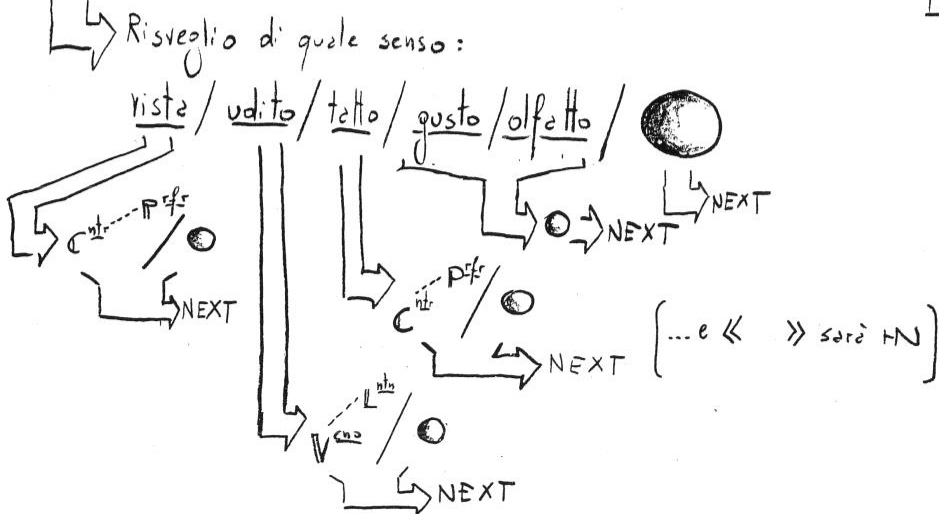 Risveglio di quale senso:
vista / udito / tatto / gusto / olfatto /
NEXT
NEXT
Cntr Prfr /
NEXT
Cntr Prfr /
NEXT
[... e « » sarà +N]
Vcno Lntn /
NEXT